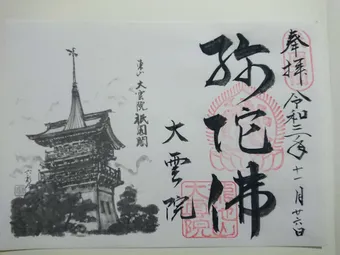 奉拝
令和三年十一月廿六日
弥陀佛
大雲院
東山 大雲院 祇園閣
大雲院